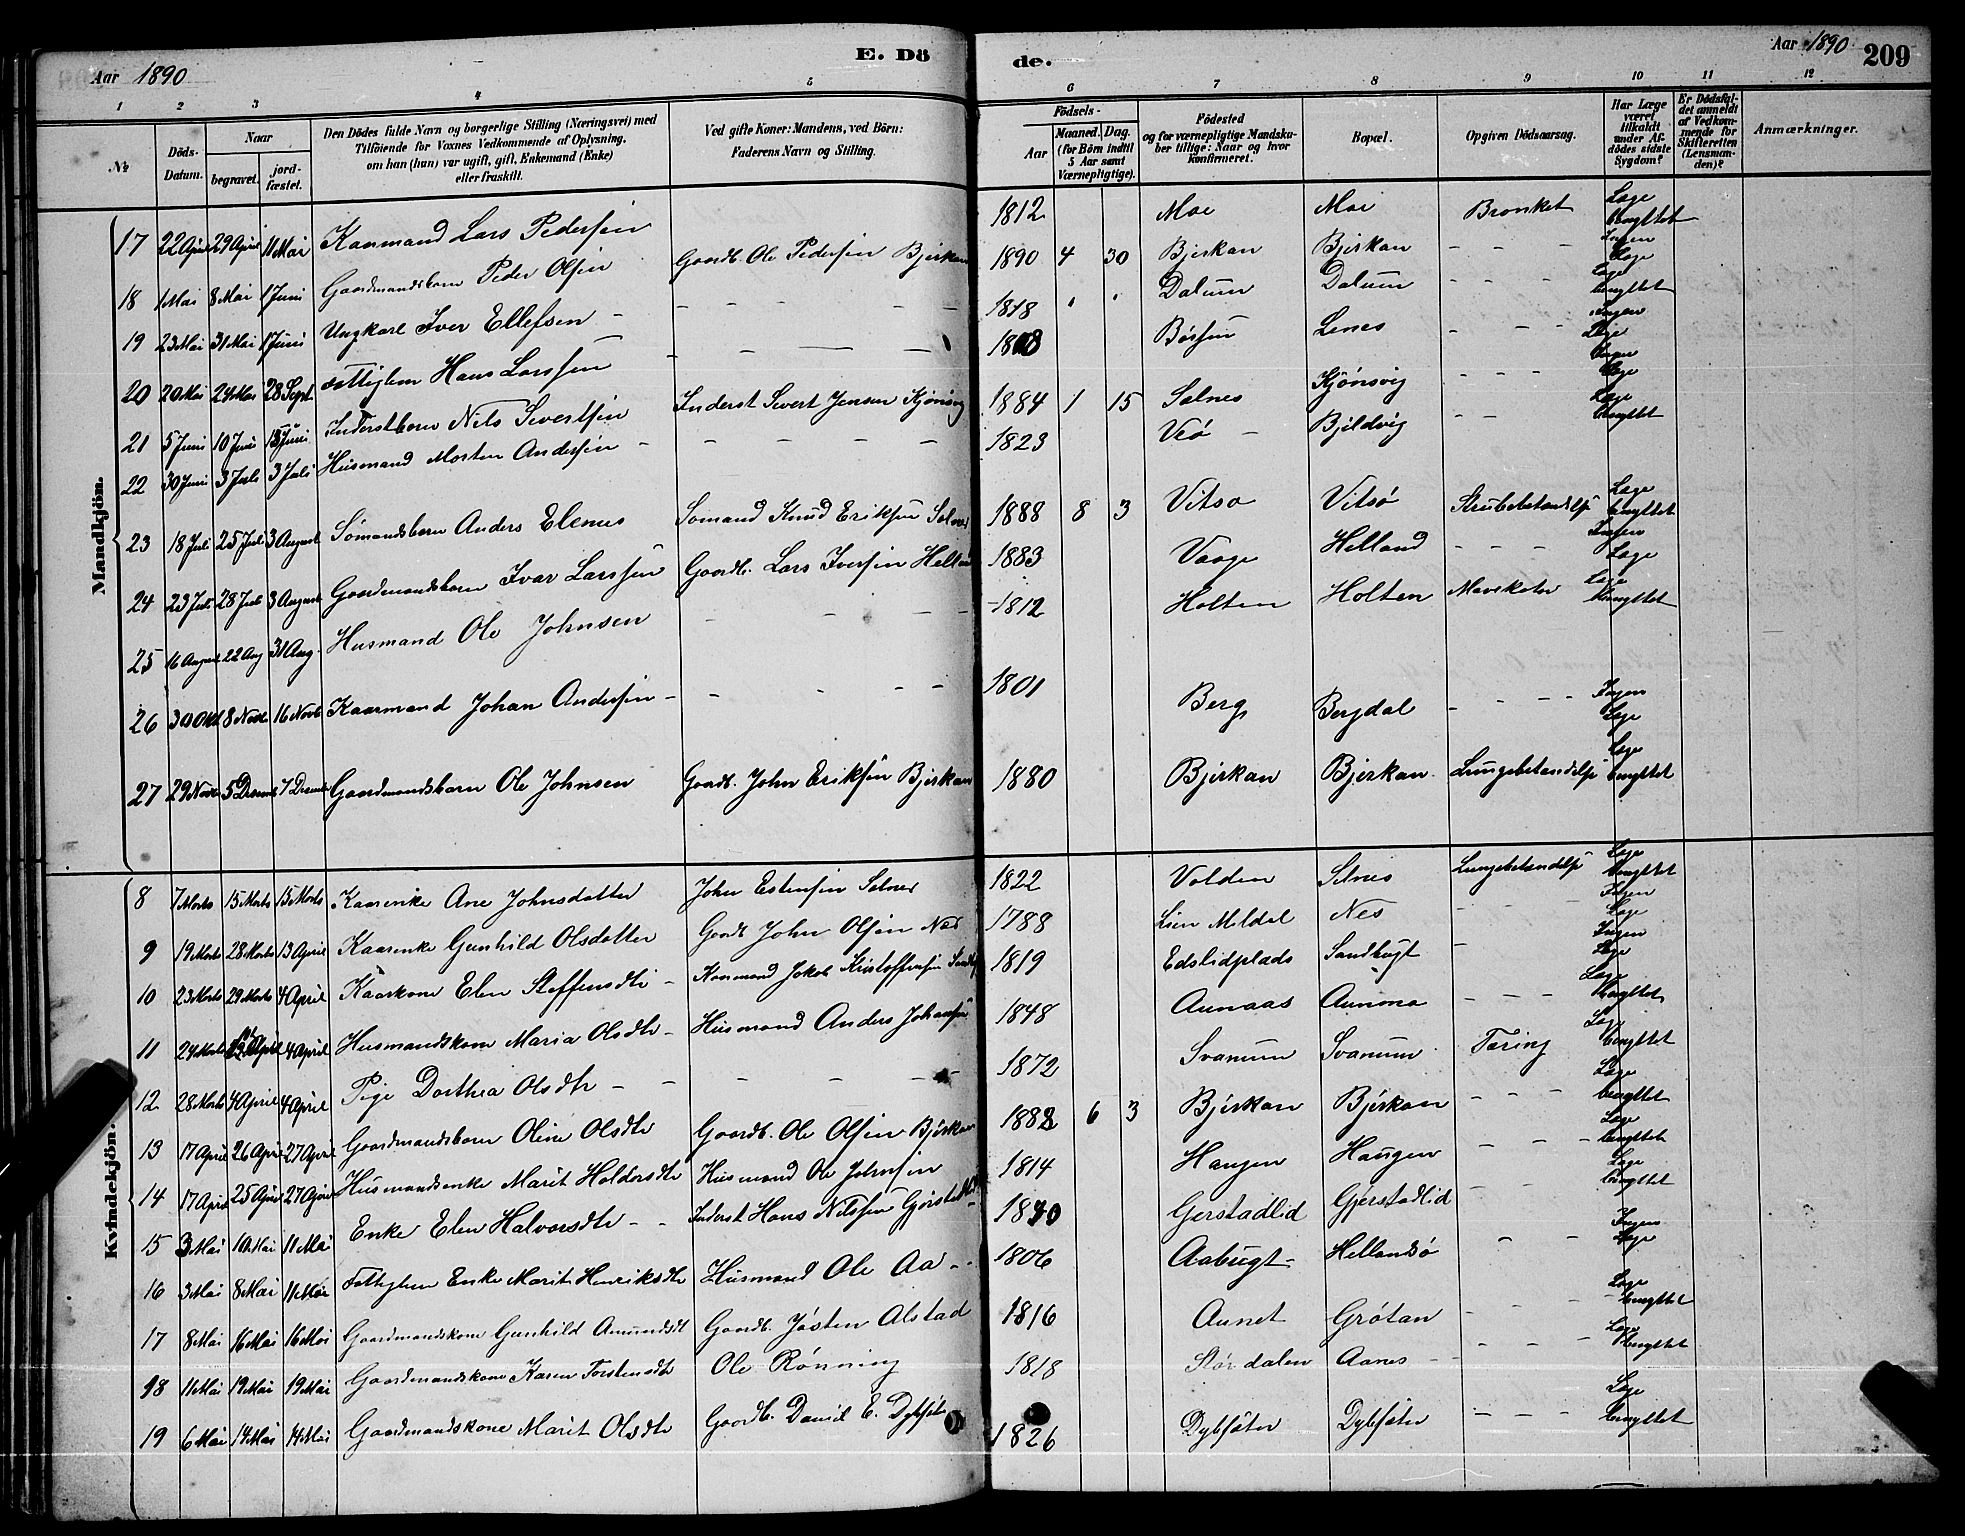 Aar 1890
E. Dö
de.
Aar 1890
209
1 2 3 4 5 6 7 8 9 10 11 12
№
Döds-Datum.
Naar
begravet.
jordfæstet.
Den Dödes fulde Navn og borgerlige Stilling (Næringsvei) med Tilföiende for Voxnes Vedkommende af Oplysning, om han (hun) var ugift, gift, Enkemand (Enke) eller fraskilt.
Ved gifte Koner: Mandens, ved Börn: Faderens Navn og Stilling.
Födsels-
Aar
Maaned. Dag. (for Börn indtil 5 Aar samt Værnepligtige).
Födested og for værnepligtige Mandskaber tillige: Naar og hvor konfirmeret.
Bopæl.
Opgiven Dödsaarsag.
Har Læge været tilkaldt under Afdödes sidste Sygdom?
Er Dödsfaldet anmeldt af Vedkommende for Skifteretten (Lensmanden)?
Anmærkninger.
Mandkjön.
17 22 April 29 April 11 Mai Kaarmand Lars Pedersen 1812 Moe Moe Bronket Læge benyttet
18 1 Mai 8 Mai 1 Juni Gaardmandsbarn Peder Olsen Gaardb. Ole Pedersen Bjerkan 1890 4 30 Bjerkan Bjerkan - - - Ingen Læge
19 23 Mai 31 Mai 1 Juni Ungkarl Iver Ellefsen - - - - 1818 Dalum Dalum Læge benyttet
20 20 Mai 24 Mai 28 Sept. Fattiglem Hans Larssen - - - - Børsen Lenes - - - Ingen Læge
21 5 Juni 10 Juni 15 Juni Inderstbarn Nils Sivertsen Inderst Sivert Jensen Kjønsvig 1884 1 15 Selnes Kjønsvig - - - Ingen Læge
22 30 Juni 3 Juli 3 Juli Husmand Morten Andersen - - - - 1823 Veø - Bjeldvig - - Læge benyttet
23 18 Juli 25 Juli 3 August Sømandsbarn Anders Elenus Sømand Knud Eriksen Selnes 1888 8 3 Vitsø Vitsø Strubebetændelse Læge benyttet
24 23 Juli 28 Juli 3 August Gaardmandsbarn Ivar Larssen Gaardb. Lars Iversen 1883 Vaage Helland - - - Ingen Læge
25 16 August 22 Aug 31 Aug. Husmand Ole Johnsen - - - 1812 Holten Holten Mavekatar Læge benyttet
26 30 Okt 8 Novb 16 Novb Kaarmand Johan Andersen - - - - 1801 Berg Bergdal - - - - Ingen Læge
27 29 Novb 5 Decemb 7 Decemb Gaardmandsbarn Ole Johnsen Gaardb. John Eriksen Bjerkan 1880 Bjerkan Bjerkan Lungebetændelse Læge benyttet
Kvindekjön.
8 7 Marts 15 Marts 15 Marts Kaarenke Ane Johnsdatter John Estensen Selnes 1822 Volden Selnes Lungebetændelse Læge benyttet
9 19 Marts 28 Marts 13 April Kaarenke Gunhild Olsdatter Gaardb John Olsen Nes 1788 Lien Meldal Nes - - - Ingen Læge
10 23 Marts 29 Marts 4 April Kaarkone Elen Steffensdtr - Kaarmand Jakob Kristoffersen 1819 Edslidplads Sandbugt - Ingen Læge
11 24 Marts April 4 April Husmandskone Maria Olsdtr - Husmand Anders Johansen 1848 Aunaas Aunmo - - - Læge benyttet
12 28 Marts 4 April 4 April Pige Dorthea Olsdtr - - - - - 1872 Svanum Svanum Tæring Læge benyttet
13 17 April 26 April 27 April Gaardmandsbarn Oline Olsdtr Gaardb. Ole Olsen Bjerkan 1888 6 3 Bjerkan Bjerkan - - - Læge benyttet
14 17 April 25 April 27 April Husmandsenke Marit Haldorsdtr Husmand Ole Johnsen 1814 Haugen Haugen - - - Læge benyttet
15 3 Mai 10 Mai 11 Mai Enke Elen Halvorsdtr - - Inderst Hans Nilssen Gjerstadlid Gjerstadlid Gjerstadlid - - Læge benyttet
16 3 Mai 8 Mai 11 Mai Fattiglem Enke Marit Henriksdtr Husmand Ole Aa - - 1806 Aabugt - Hellandsø - - Ingen Læge
17 8 Mai 16 Mai 16 Mai Gaardmandskone Gunhild Amundsdt Gaardb. Josten Alstad 1816 Aunet Grøtan - - - Læge benyttet
18 11 Mai 19 Mai 19 Mai Gaardmandskone Karen Torstensdtr Ole Rønning 1818 Størdalen Aanes - - - Læge benyttet
19 6 Mai 14 Mai 14 Mai Gaardmandskone Marit Olsdtr Gaardb. Daniel E. Dybfæster 1826 Dybfæster Dybfæster - - - Læge benyttet